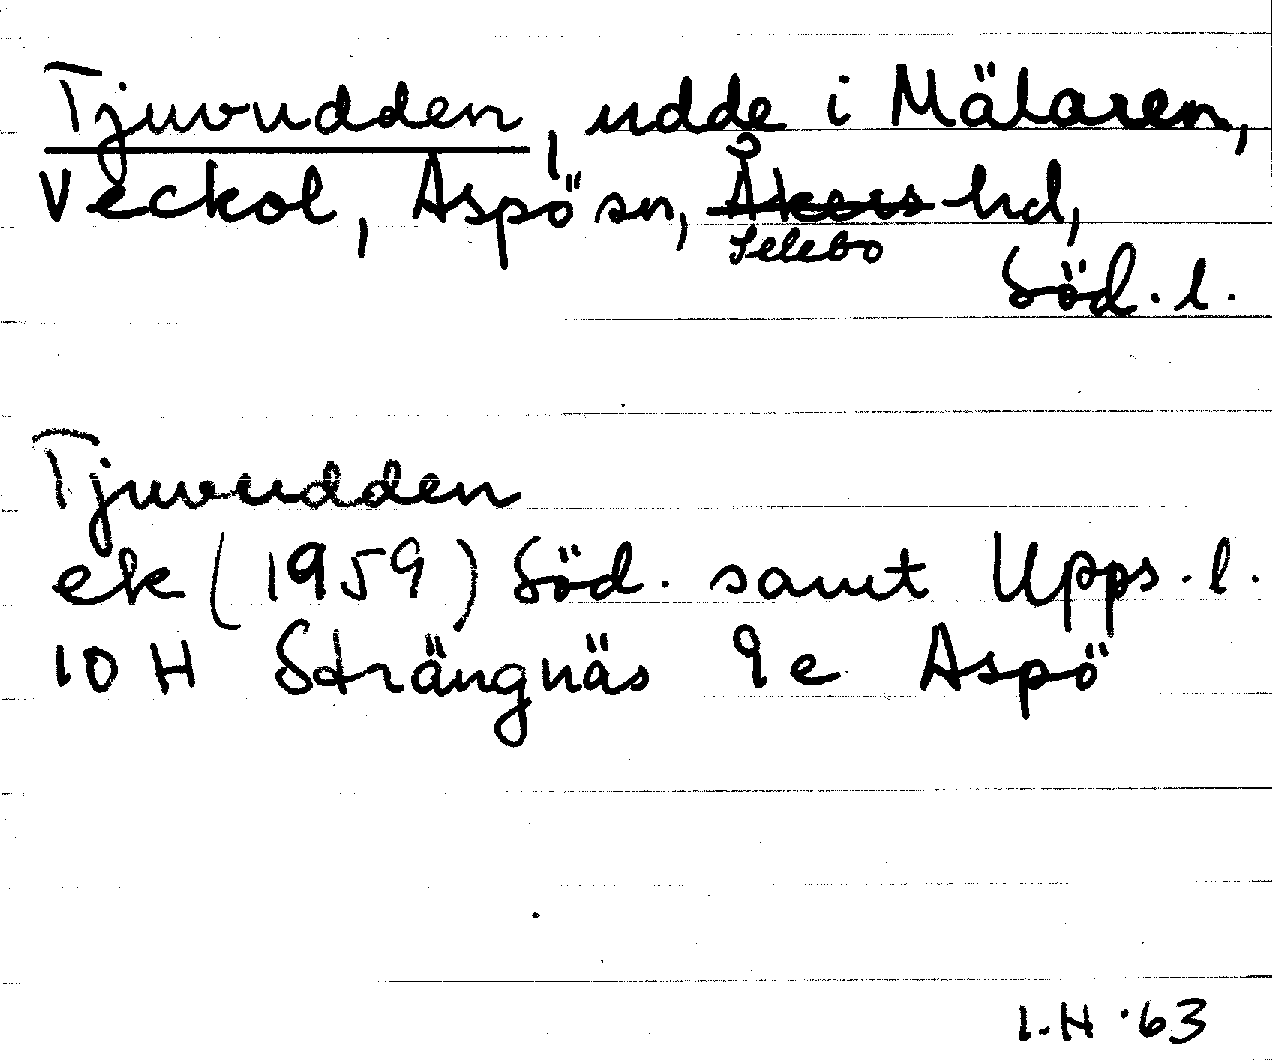 Tjuvudden, udde i Mälaren,
Veckol, Aspö sn, Åkers hd,
Selebo
Söd. l.
Tjuvudden
ek (1959) Söd. samt Upps. l.
10 H Strängnäs 9e Aspö
I.H '63